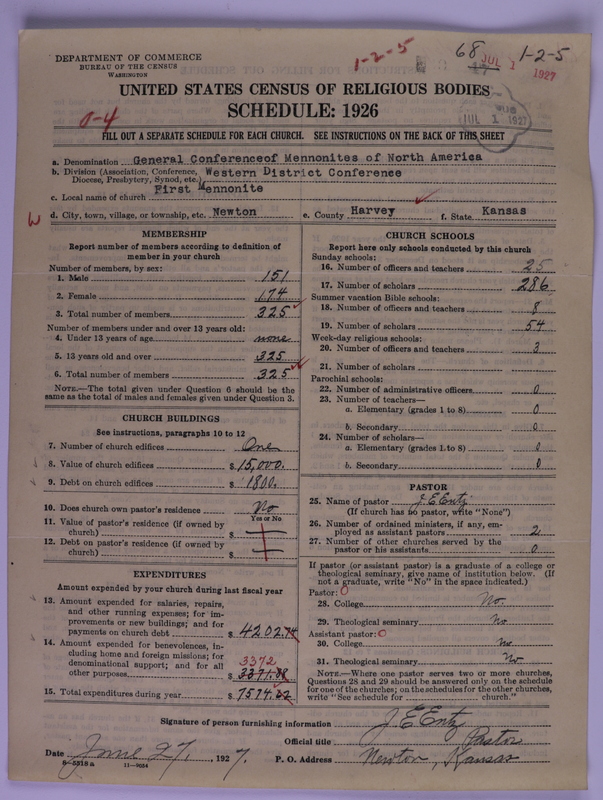 DEPARTMENT OF COMMERCE
BUREAU OF THE CENSUS
WASHINGTON
1-2-5
68
JUL 1 1927
1-2-5
UNITED STATES CENSUS OF RELIGIOUS BODIES
SCHEDULE: 1926
0-4
JUL 1 1927
FILL OUT A SEPARATE SCHEDULE FOR EACH CHURCH. SEE INSTRUCTIONS ON THE BACK OF THIS SHEET
a. Denomination General Conferenceof Mennonites of North America
b. Division (Association, Conference, Western District Conference
Diocese, Presbytery, Synod, etc.)
c. Local name of church First Mennonite
W d. City, town, village, or township, etc. Newton e. County Harvey f. State Kansas
MEMBERSHIP
Report number of members according to definition of
member in your church
Number of members, by sex:
1. Male 151
2. Female 174
3. Total number of members 325
Number of members under and over 13 years old:
4. Under 13 years of age none
5. 13 years old and over 325
6. Total number of members 325
NOTE.—The total given under Question 6 should be the
same as the total of males and females given under Question 3.
CHURCH BUILDINGS
See instructions, paragraphs 10 to 12
7. Number of church edifices One
8. Value of church edifices $15,000.
9. Debt on church edifices $1800.
10. Does church own pastor's residence No
Yes or No
11. Value of pastor's residence (if owned by
church) $
12. Debt on pastor's residence (if owned by
church) $
EXPENDITURES
Amount expended by your church during last fiscal year
13. Amount expended for salaries, repairs,
and other running expenses; for im-
provements or new buildings; and for
payments on church debt $4202.74
14. Amount expended for benevolences, in-
cluding home and foreign missions; for
denominational support; and for all 3372
other purposes $
15. Total expenditures during year $7574.
CHURCH SCHOOLS
Report here only schools conducted by this church
Sunday schools:
16. Number of officers and teachers 25
17. Number of scholars 286
Summer vacation Bible schools:
18. Number of officers and teachers 8
19. Number of scholars 54
Week-day religious schools:
20. Number of officers and teachers 3
21. Number of scholars
Parochial schools:
22. Number of administrative officers 0
23. Number of teachers—
a. Elementary (grades 1 to 8) 0
b. Secondary 0
24. Number of scholars—
a. Elementary (grades 1 to 8) 0
b. Secondary 0
PASTOR
25. Name of pastor J.E. Entz
(If church has no pastor, write "None")
26. Number of ordained ministers, if any, em-
ployed as assistant pastors 2
27. Number of other churches served by the
pastor or his assistants 0
If pastor (or assistant pastor) is a graduate of a college or
theological seminary, give name of institution below. (If
not a graduate, write "No" in the space indicated.)
Pastor: 0
28. College No.
29. Theological seminary No
Assistant pastor: 0
30. College No
31. Theological seminary No
NOTE.—Where one pastor serves two or more churches,
Questions 28 and 29 should be answered only on the schedule
for one of the churches; on the schedules for the other churches,
write "See schedule for church."
Signature of person furnishing information J. E. Entz
Official title Pastor
Date June 27, 1927. P. O. Address Newton, Kansas
8-5518 a 11-9034